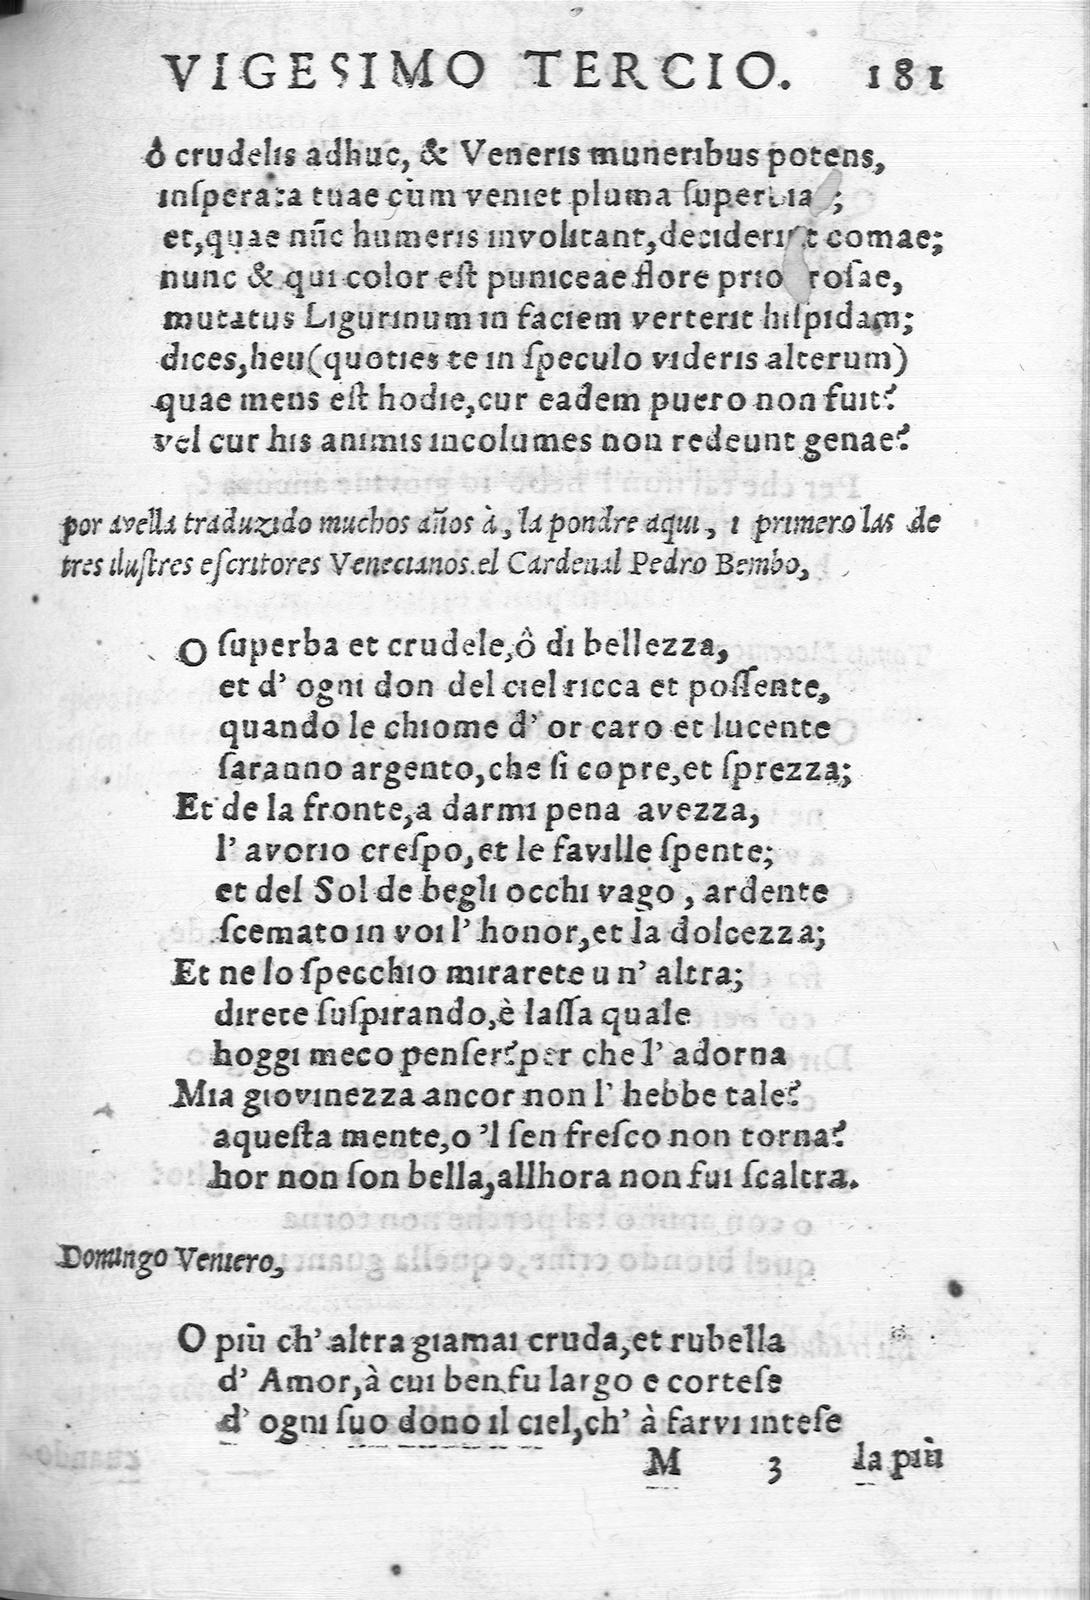 VIGESIMO TERCIO. 181
ô crudelis adhuc, & Veneris muneribus potens,
inſperata tuae cùm veniet pluma ſuperbiae;
et, quae nũc humeris involitant, deciderint comae;
nunc & qui color eſt puniceae flore prior roſae,
mutatus Ligurinum in faciem verterit hiſpidam;
dices, heu (quoties te in ſpeculo videris alterum)
quae mens eſt hodie, cur eadem puero non fuit?
vel cur his animis incolumes non redeunt genae?
por avella traduzido muchos años à, la pondre aqui, i primero las de
tres iluſtres eſcritores Venecianos. el Cardenal Pedro Bembo,
O ſuperba et crudele, ô di bellezza,
et d' ogni don del ciel ricca et poſſente,
quando le chiome d' or caro et lucente
ſaranno argento, che ſi copre, et ſprezza;
Et de la fronte, a darmi pena avezza,
l' avorio creſpo, et le faville ſpente;
et del Sol de begli occhi vago, ardente
ſcemato in voi l' honor, et la dolcezza;
Et ne lo ſpecchio mirarete un' altra;
direte ſuſpirando, è laſſa quale
hoggi meco penſer? per che l' adorna
Mia giovinezza ancor non l' hebbe tale?
aqueſta mente, o 'l ſen freſco non torna?
hor non ſon bella, allhora non fui ſcaltra.
Domingo Veniero,
O più ch' altra giamai cruda, et rubella
d' Amor, à cui ben fu largo e corteſe
d' ogni ſuo dono il ciel, ch' à farvi inteſe
M 3 la più